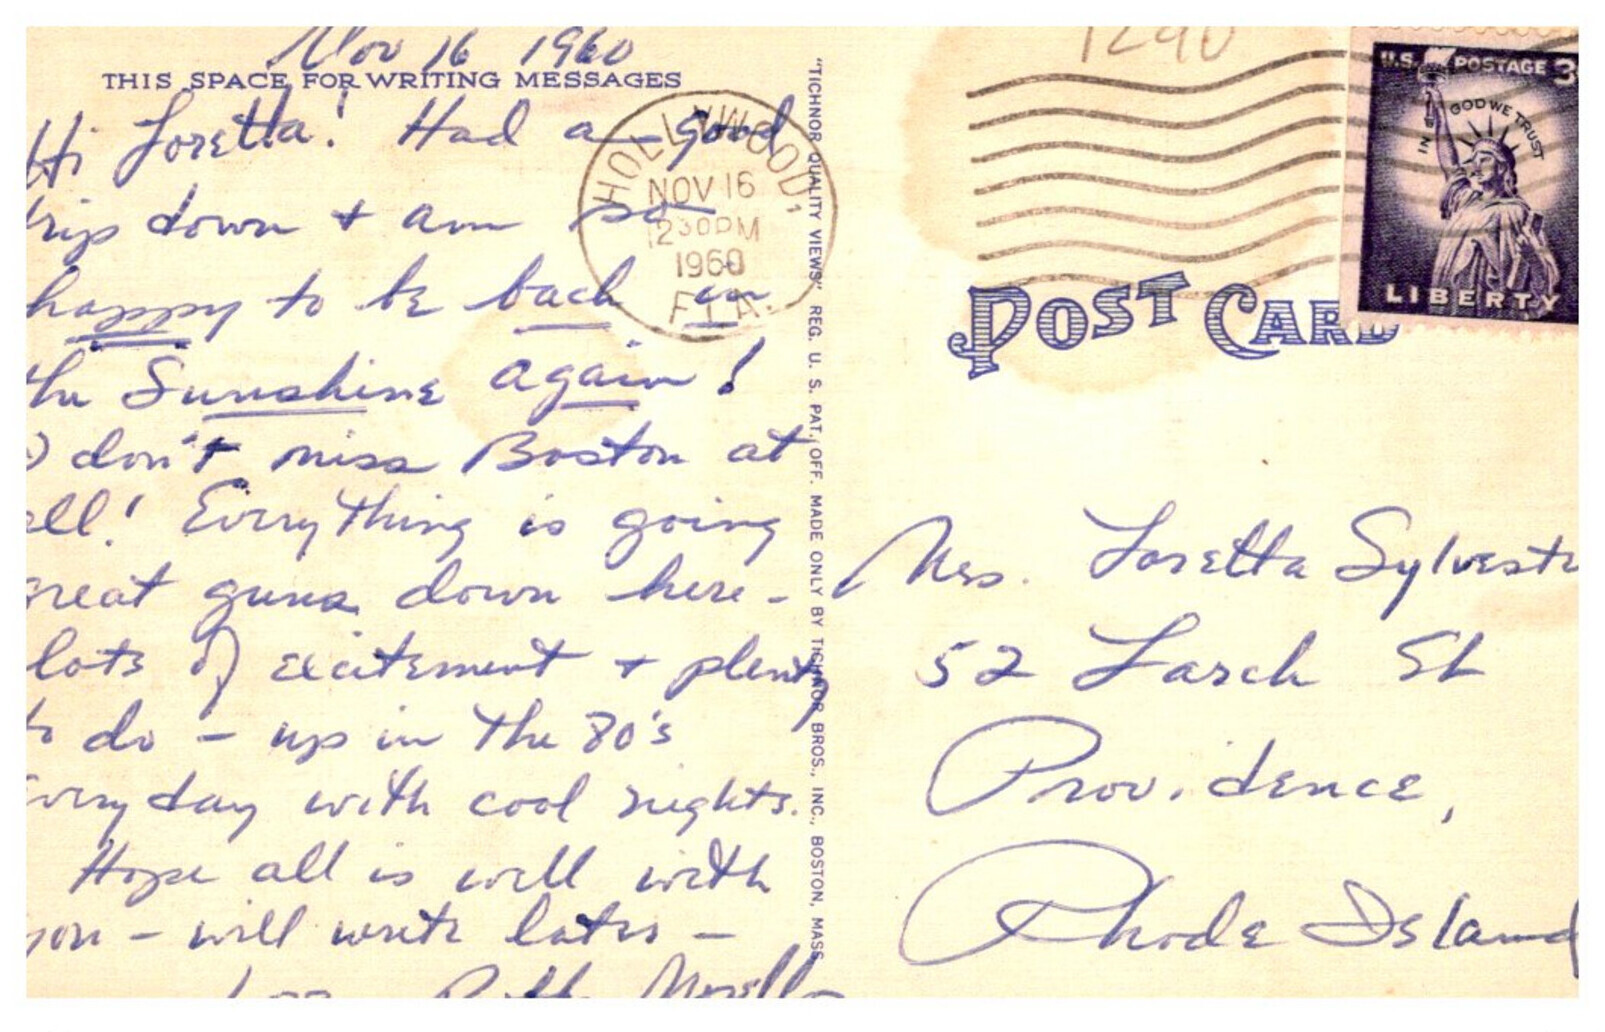 Nov 16 1960
THIS SPACE FOR WRITING MESSAGES
Hi Loretta! Had a good
trip down + am so
happy to be back in
the Sunshine again!
I don't miss Boston at
all! Everything is going
great guns down here -
lots of excitement + plenty
to do - up in the 80's
everyday with cool nights.
Hope all is well with
you - will write later -
"TICHNOR QUALITY VIEWS" REG. U. S. PAT. OFF. MADE ONLY BY TICHNOR BROS., INC., BOSTON, MASS.
HOLLYWOOD,
NOV 16
1230PM
1960
FLA.
1290
U.S. POSTAGE 3
IN GOD WE TRUST
LIBERTY
POST CARD
Mrs. Loretta Sylvest
52 Larch St
Providence,
Rhode Island